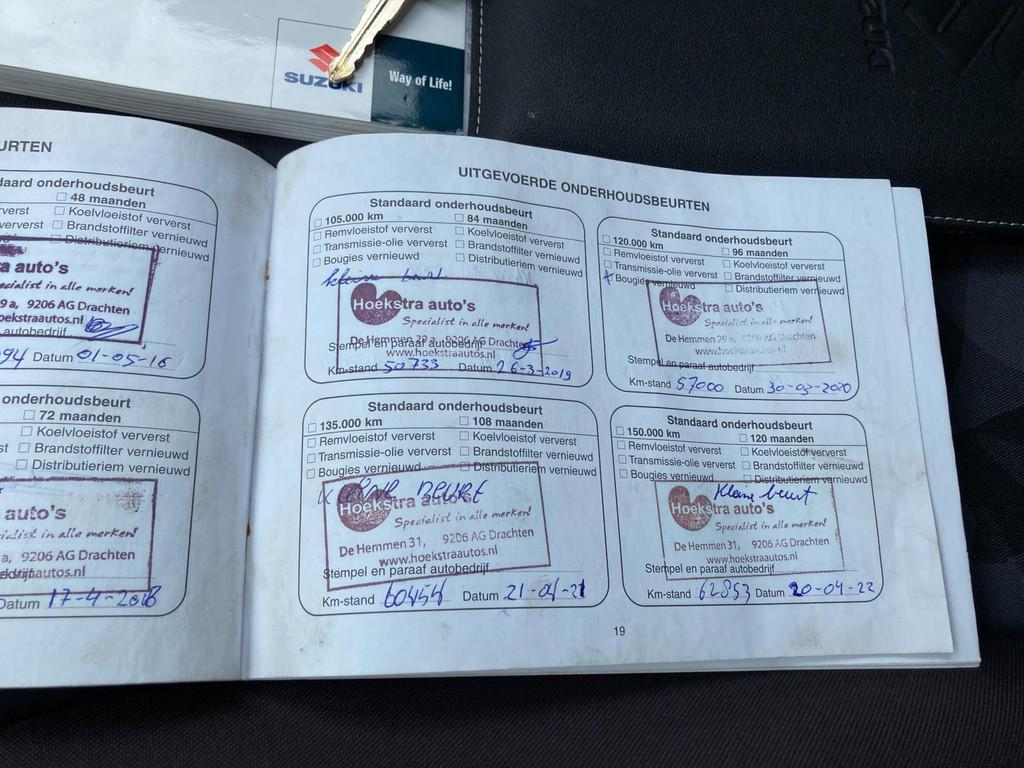 SUZUKI
Way of Life!
URTEN
daard onderhoudsbeurt
☐ 48 maanden
verst ☐ Koelvloeistof ververst
ververst ☐ Brandstoffilter vernieuwd
☐ Distributieriem vernieuwd
ra auto's
ecialist in alle merken!
9a, 9206 AG Drachten
oekstraautos.nl
autobedrijf
94 Datum 01-05-16
onderhoudsbeurt
☐ 72 maanden
☐ Koelvloeistof ververst
st ☐ Brandstoffilter vernieuwd
☐ Distributieriem vernieuwd
auto's
ialist in alle merken!
a, 9206 AG Drachten
autos.nl
Datum 17-4-2018
UITGEVOERDE ONDERHOUDSBEURTEN
Standaard onderhoudsbeurt
☐ 105.000 km ☐ 84 maanden
☐ Remvloeistof ververst ☐ Koelvloeistof ververst
☐ Transmissie-olie ververst ☐ Brandstoffilter vernieuwd
☐ Bougies vernieuwd ☐ Distributieriem vernieuwd
kleine beurt
Hoekstra auto's
Specialist in alle merken!
De Hemmen 29 a, 9206 AG Drachten
Stempel en paraaf autobedrijf
www.hoekstraautos.nl
Km-stand 50733 Datum 26-3-2019
Standaard onderhoudsbeurt
☐ 120.000 km ☐ 96 maanden
☐ Remvloeistof ververst ☐ Koelvloeistof ververst
☐ Transmissie-olie ververst ☐ Brandstoffilter vernieuwd
☐ Bougies vernieuwd ☐ Distributieriem vernieuwd
Hoekstra auto's
Specialist in alle merken!
De Hemmen 29 a, 9206 AG Drachten
www.hoekstraautos.nl
Stempel en paraaf autobedrijf
Km-stand 57000 Datum 30-03-2020
Standaard onderhoudsbeurt
☐ 135.000 km ☐ 108 maanden
☐ Remvloeistof ververst ☐ Koelvloeistof ververst
☐ Transmissie-olie ververst ☐ Brandstoffilter vernieuwd
☐ Bougies vernieuwd ☐ Distributieriem vernieuwd
BEURT
Hoekstra auto's
Specialist in alle merken!
De Hemmen 31, 9206 AG Drachten
www.hoekstraautos.nl
Stempel en paraaf autobedrijf
Km-stand 60454 Datum 21-04-21
Standaard onderhoudsbeurt
☐ 150.000 km ☐ 120 maanden
☐ Remvloeistof ververst ☐ Koelvloeistof ververst
☐ Transmissie-olie ververst ☐ Brandstoffilter vernieuwd
☐ Bougies vernieuwd ☐ Distributieriem vernieuwd
Kleine beurt
Hoekstra auto's
Specialist in alle merken!
De Hemmen 31, 9206 AG Drachten
www.hoekstraautos.nl
Stempel en paraaf autobedrijf
Km-stand 62853 Datum 20-04-22
19